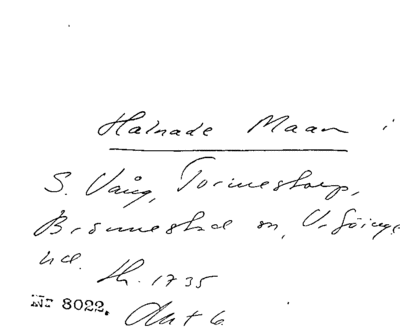 Halnade Maan i
S. Vång, Tormestorp,
Brönnestad sn, V. Göinge
hd. Th. 1735
Nr 8022. Akt 6.